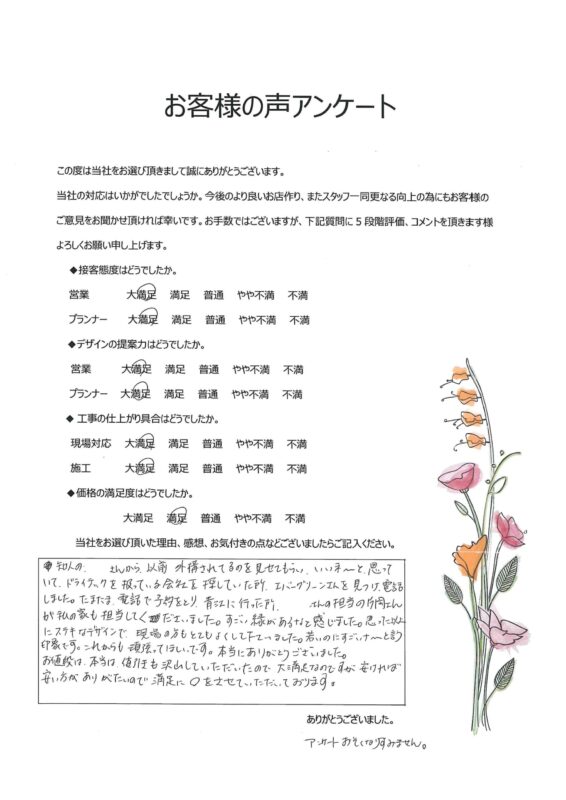 お客様の声アンケート
この度は当社をお選び頂きまして誠にありがとうございます。
当社の対応はいかがでしたでしょうか。今後のより良いお店作り、またスタッフ一同更なる向上の為にもお客様の
ご意見をお聞かせ頂ければ幸いです。お手数ではございますが、下記質問に 5 段階評価、コメントを頂きます様
よろしくお願い申し上げます。
◆接客態度はどうでしたか。
営業 大満足 満足 普通 やや不満 不満
プランナー 大満足 満足 普通 やや不満 不満
◆デザインの提案力はどうでしたか。
営業 大満足 満足 普通 やや不満 不満
プランナー 大満足 満足 普通 やや不満 不満
◆ 工事の仕上がり具合はどうでしたか。
現場対応 大満足 満足 普通 やや不満 不満
施工 大満足 満足 普通 やや不満 不満
◆価格の満足度はどうでしたか。
大満足 満足 普通 やや不満 不満
当社をお選び頂いた理由、感想、お気付きの点などございましたらご記入ください。
知人の、 さんから、以前 外構されてるのを見せてもらい、いいネーと思って
いて、ドライテックを扱っている会社を探していた所、エバーグリーンさんを見つけ、電話
しました。たまたま、電話で予約をとり、青江に行った所、 さんの担当の片岡さん
が私の家も担当してくださいました。すごい縁があるなと感じました。思った以上
にステキなデザインで、現場の方もとてもよくして下さいました。若いのにすごいナーと言う
印象です。これからも頑張ってほしいです。本当にありがとうございました。
お値段は、本当は、値引きも沢山していただいたので大満足なのですが安ければ
安い方がありがたいので満足に○をさせていただいております。
ありがとうございました。
アンケートおそくなりすみません。